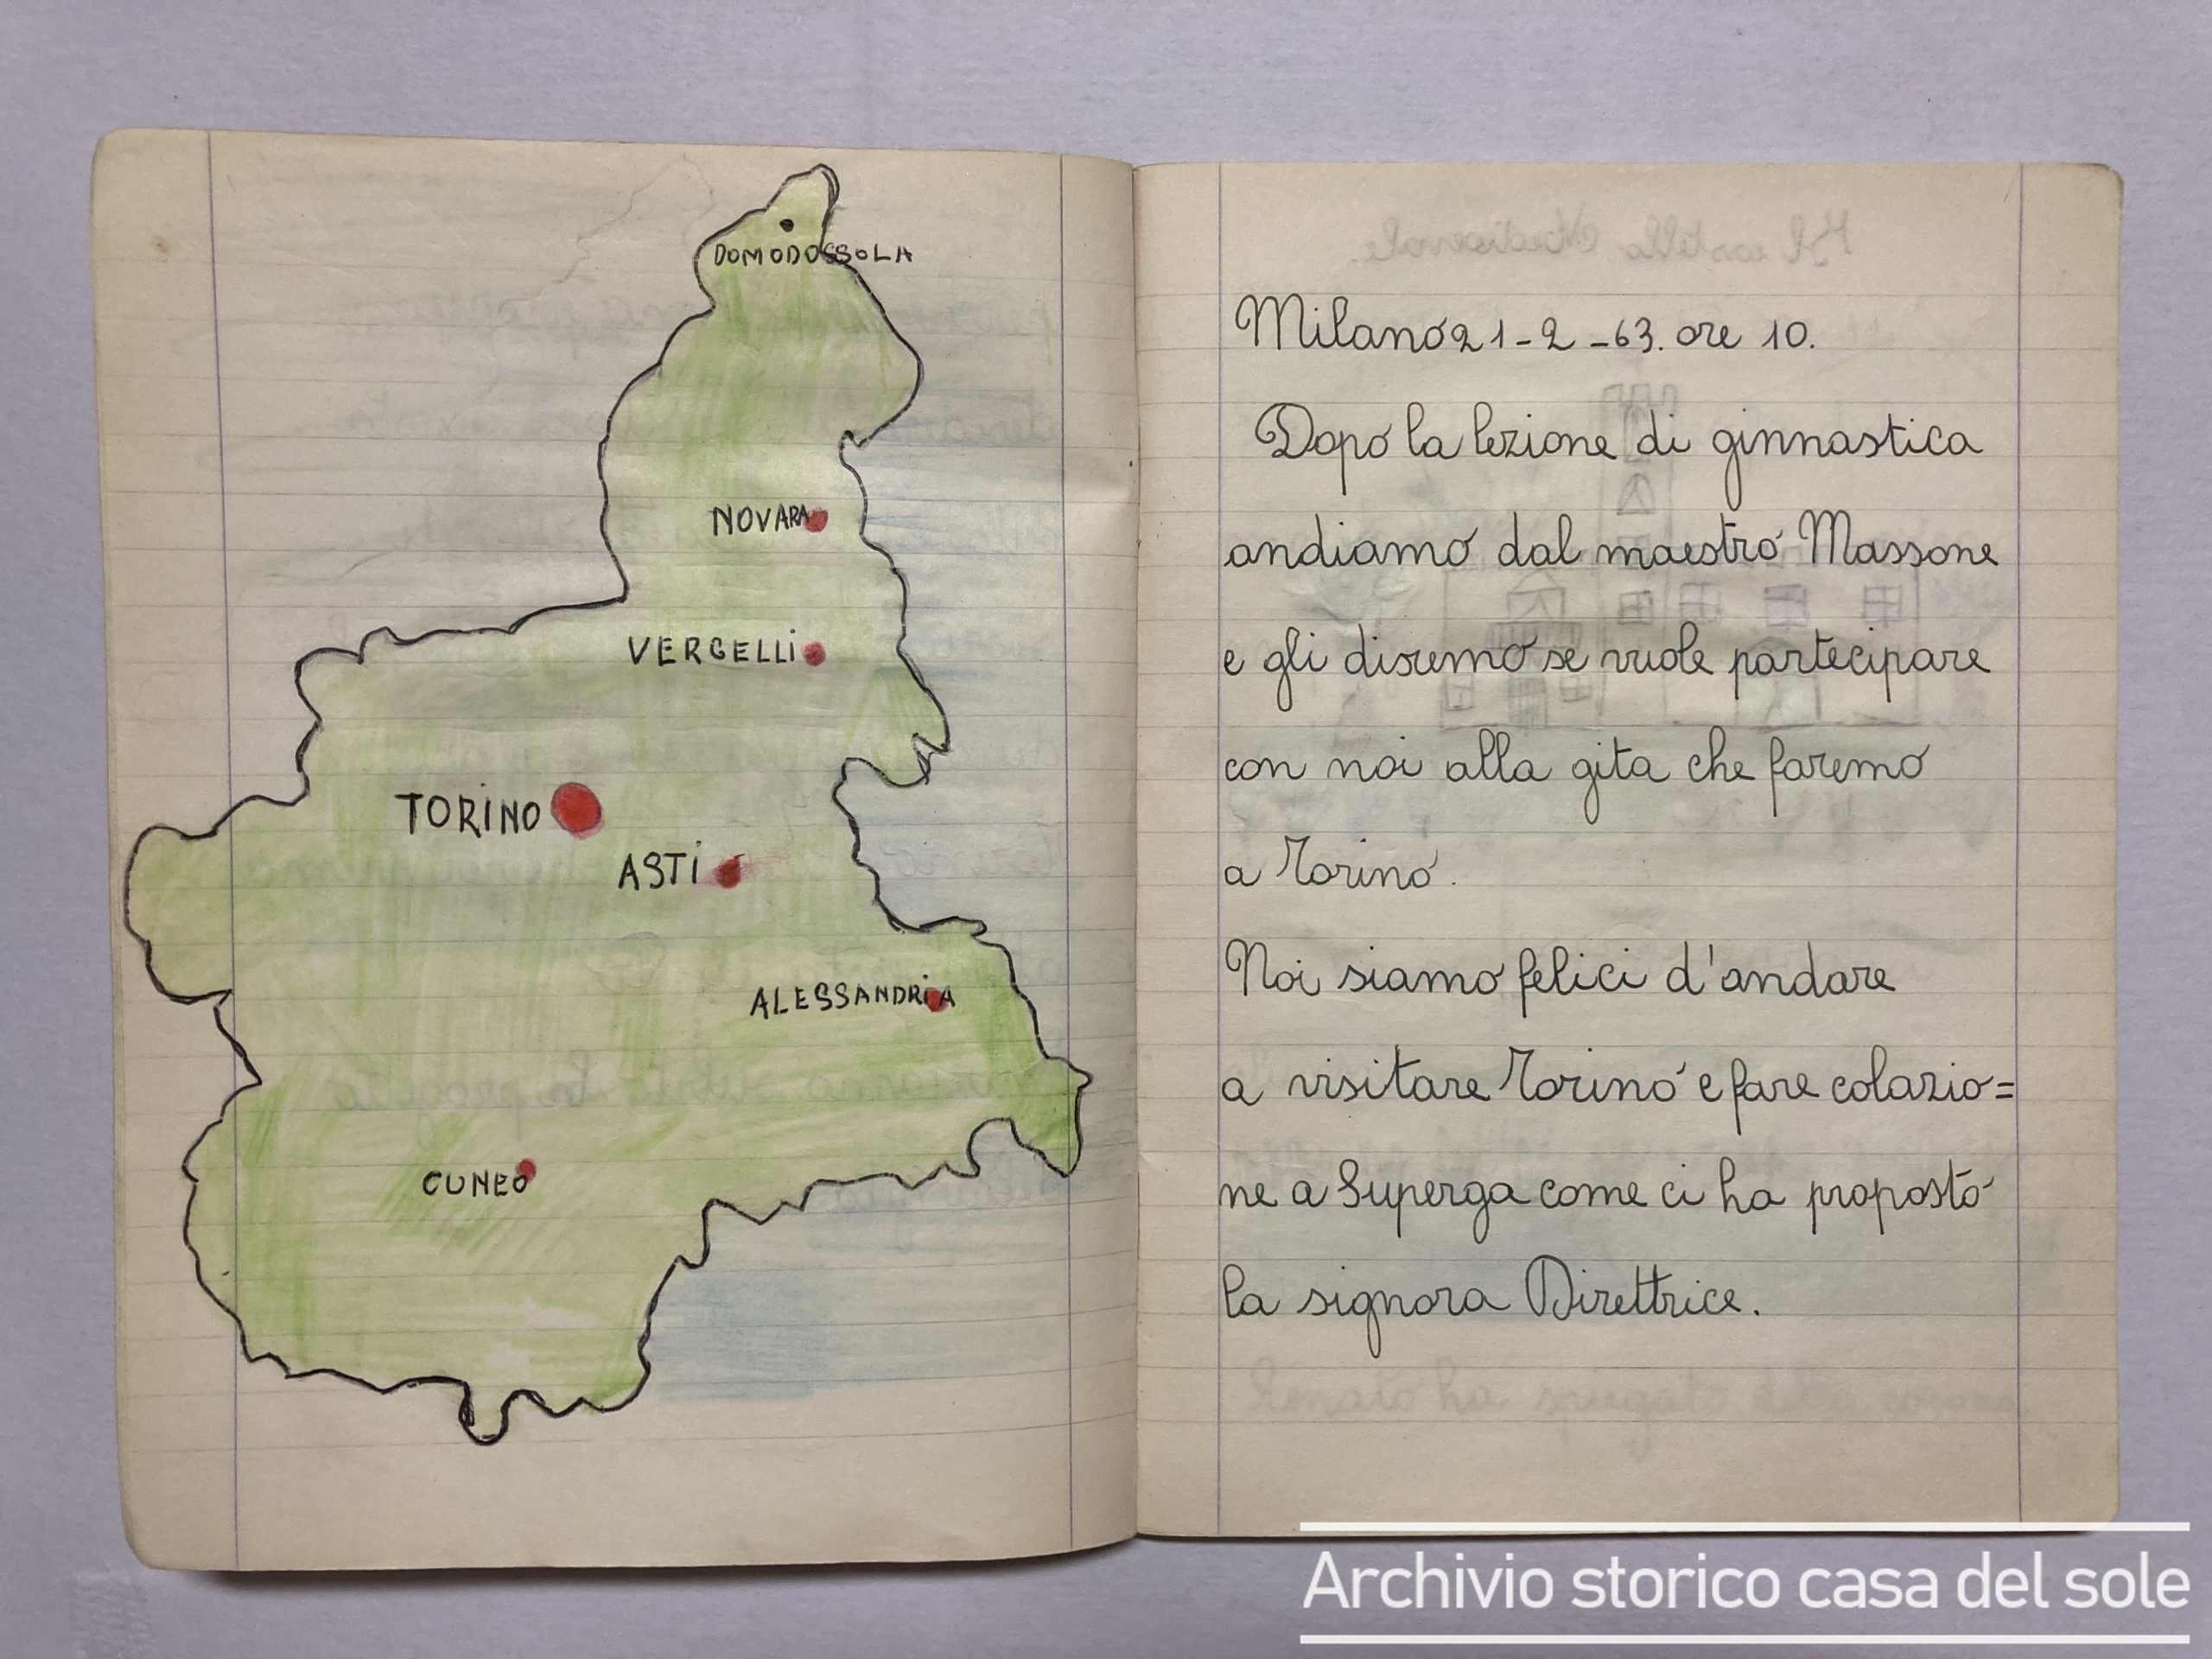 DOMODOSSOLA
NOVARA
VERCELLI
TORINO
ASTI
ALESSANDRIA
CUNEO
Milano 21-2-63. ore 10.
Dopo la lezione di ginnastica
andiamo dal maestro Massone
e gli diremo se vuole partecipare
con noi alla gita che faremo
a Torino.
Noi siamo felici d'andare
a visitare Torino e fare colazio=
ne a Superga come ci ha proposto
la signora Direttrice.
Archivio storico casa del sole